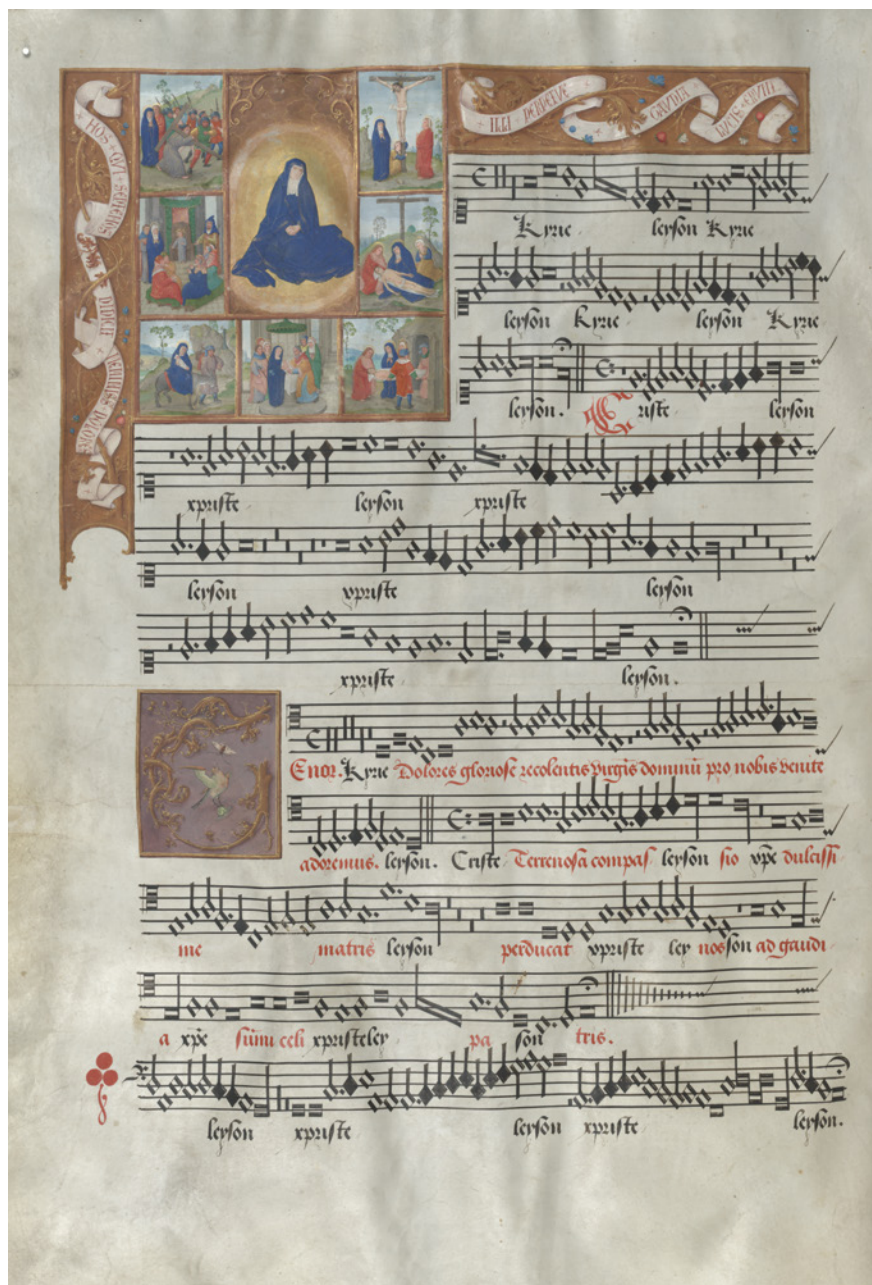 HOS + QVI + SEPTENOS
DIDICIT
DOLORES
ILLI PERPETVE
GAVDIA
LVCIS +
Kyrie leyson Kyrie
leyson Kyrie leyson Kyrie
leyson. Criste leyson
xpriste leyson xpriste
leyson xpriste leyson
xpriste leyson.
Enor. Kyrie Dolores gloriose recolentis virgīs dominū pro nobis venite
adoremus. leyson. Criste Terrenosa compas leyson sio xp̄e dulcissi
me matris leyson perducat xpriste ley nos son ad gaudi
a xp̄e sūmi celi xpriste ley pa son tris.
leyson xpriste leyson xpriste leyson.